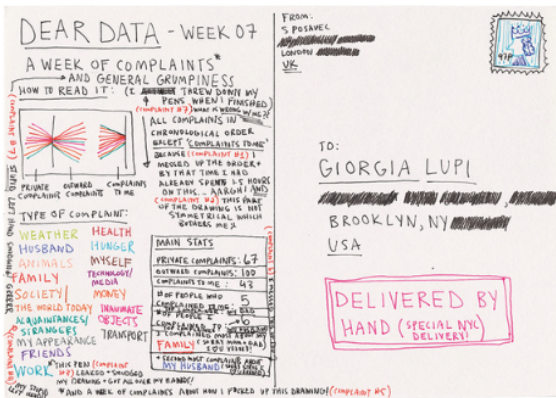 DEAR DATA - WEEK 07
A WEEK OF COMPLAINTS*
AND GENERAL GRUMPINESS
HOW TO READ IT: (I THREW DOWN MY
PENS WHEN I FINISHED)
(COMPLAINT #7) WHAT IS WRONG W/ME?!
ALL COMPLAINTS IN
CHRONOLOGICAL ORDER
EXCEPT "COMPLAINTS TO ME"
BECAUSE (COMPLAINT #1) I
MESSED UP THE ORDER +
BY THAT TIME I HAD
ALREADY SPENT 1.5 HOURS
ON THIS... AARGH! AND
(COMPLAINT #2) THIS PART
OF THE DRAWING IS NOT
SYMMETRICAL WHICH
BOTHERS ME
PRIVATE COMPLAINTS
OUTWARD COMPLAINTS
COMPLAINTS TO ME
TYPE OF COMPLAINT:
WEATHER
HUSBAND
ANIMALS
FAMILY
SOCIETY/
THE WORLD TODAY
ACQUAINTANCES/
STRANGERS
MY APPEARANCE
FRIENDS
WORK
HEALTH
HUNGER
MYSELF
TECHNOLOGY/
MEDIA
MONEY
INANIMATE
OBJECTS
TRANSPORT
MAIN STATS
PRIVATE COMPLAINTS: 67
OUTWARD COMPLAINTS: 100
COMPLAINTS TO ME: 43
# OF PEOPLE WHO
COMPLAINED TO ME: 5
# OF PEOPLE I
COMPLAINED TO: 6
I COMPLAINED MOST ABOUT MY
FAMILY (SORRY MUM + DAD)
I LOVE YOU!
+ SECOND MOST COMPLAINTS ABOUT
MY HUSBAND
*THIS PEN (COMPLAINT
LEAKED + SMUDGED
MY DRAWING + GOT ALL OVER MY HANDS!
(MY STUPID
LEFT HAND)
*AND A WEEK OF COMPLAINTS ABOUT HOW I F*CKED UP THIS DRAWING! (COMPLAINT #5)
FROM:
S. POSAVEC
LONDON
UK
47P
TO:
GIORGIA LUPI
BROOKLYN, NY
USA
DELIVERED BY
HAND (SPECIAL NYC
DELIVERY!)